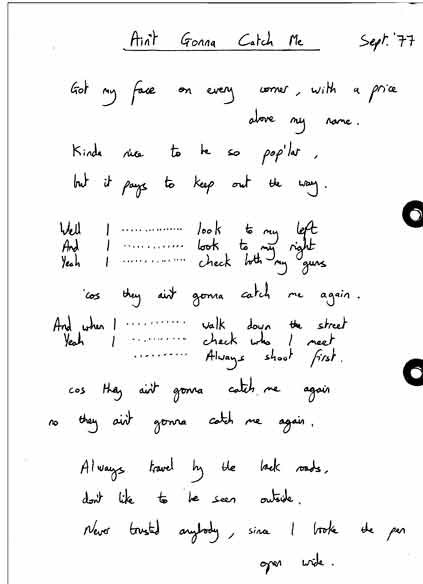 Ain't Gonna Catch Me Sept. '77
Got my face on every corner, with a price
above my name.
Kinda nice to be so pop'lar,
but it pays to keep out the way.
Well I .............. look to my left
And I .............. look to my right
Yeah I .............. check both my guns
'cos they ain't gonna catch me again.
And when I ............ walk down the street
Yeah I ............ check who I meet
............ Always shoot first.
cos they ain't gonna catch me again
no they ain't gonna catch me again.
Always travel by the back roads,
don't like to be seen outside.
Never trusted anybody, since I broke the pen
open wide.